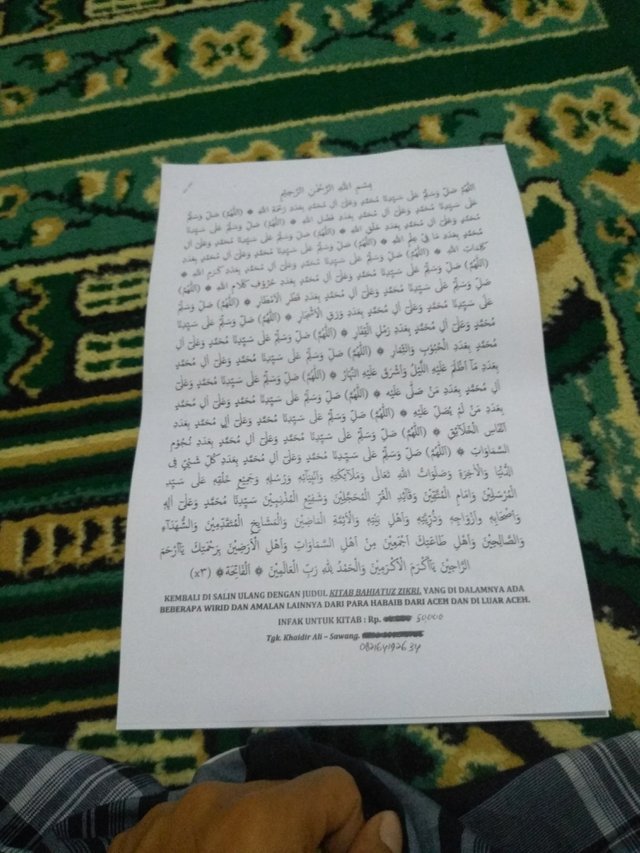 بِسْمِ اللهِ الرَّحْمٰنِ الرَّحِيْمِ
اَللّٰهُمَّ صَلِّ وَسَلِّمْ عَلَى سَيِّدِنَا مُحَمَّدٍ وَعَلَىٰ آلِ مُحَمَّدٍ بِعَدَدِ رَحْمَةِ اللهِ ۞ (اَللّٰهُمَّ) صَلِّ وَسَلِّمْ
عَلَى سَيِّدِنَا مُحَمَّدٍ وَعَلَىٰ آلِ مُحَمَّدٍ بِعَدَدِ فَضْلِ اللهِ ۞ (اَللّٰهُمَّ) صَلِّ وَسَلِّمْ عَلَى سَيِّدِنَا
مُحَمَّدٍ وَعَلَىٰ آلِ مُحَمَّدٍ بِعَدَدِ خَلْقِ اللهِ ۞ (اَللّٰهُمَّ) صَلِّ وَسَلِّمْ عَلَى سَيِّدِنَا مُحَمَّدٍ وَعَلَىٰ آلِ
مُحَمَّدٍ بِعَدَدِ مَا فِيْ عِلْمِ اللهِ ۞ (اَللّٰهُمَّ) صَلِّ وَسَلِّمْ عَلَى سَيِّدِنَا مُحَمَّدٍ وَعَلَىٰ آلِ مُحَمَّدٍ بِعَدَدِ
كَلِمَاتِ اللهِ ۞ (اَللّٰهُمَّ) صَلِّ وَسَلِّمْ عَلَى سَيِّدِنَا مُحَمَّدٍ وَعَلَىٰ آلِ مُحَمَّدٍ بِعَدَدِ كَرَمِ اللهِ ۞
(اَللّٰهُمَّ) صَلِّ وَسَلِّمْ عَلَى سَيِّدِنَا مُحَمَّدٍ وَعَلَىٰ آلِ مُحَمَّدٍ بِعَدَدِ حُرُوْفِ كَلَامِ اللهِ ۞ (اَللّٰهُمَّ)
صَلِّ وَسَلِّمْ عَلَى سَيِّدِنَا مُحَمَّدٍ وَعَلَىٰ آلِ مُحَمَّدٍ بِعَدَدِ قَطْرِ الْاَمْطَارِ ۞ (اَللّٰهُمَّ) صَلِّ وَسَلِّمْ
عَلَى سَيِّدِنَا مُحَمَّدٍ وَعَلَىٰ آلِ مُحَمَّدٍ بِعَدَدِ وَرَقِ الْاَشْجَارِ ۞ (اَللّٰهُمَّ) صَلِّ وَسَلِّمْ عَلَى سَيِّدِنَا
مُحَمَّدٍ وَعَلَىٰ آلِ مُحَمَّدٍ بِعَدَدِ رَمْلِ الْقِفَارِ ۞ (اَللّٰهُمَّ) صَلِّ وَسَلِّمْ عَلَى سَيِّدِنَا مُحَمَّدٍ وَعَلَىٰ آلِ
مُحَمَّدٍ بِعَدَدِ الْحُبُوْبِ وَالثِّمَارِ ۞ (اَللّٰهُمَّ) صَلِّ وَسَلِّمْ عَلَى سَيِّدِنَا مُحَمَّدٍ وَعَلَىٰ آلِ مُحَمَّدٍ
بِعَدَدِ مَآ اَظْلَمَ عَلَيْهِ اللَّيْلُ وَاَشْرَقَ عَلَيْهِ النَّهَارُ ۞ (اَللّٰهُمَّ) صَلِّ وَسَلِّمْ عَلَى سَيِّدِنَا مُحَمَّدٍ وَعَلَىٰ
آلِ مُحَمَّدٍ بِعَدَدِ مَنْ صَلَّى عَلَيْهِ ۞ (اَللّٰهُمَّ) صَلِّ وَسَلِّمْ عَلَى سَيِّدِنَا مُحَمَّدٍ وَعَلَىٰ آلِ مُحَمَّدٍ
بِعَدَدِ مَنْ لَمْ يُصَلِّ عَلَيْهِ ۞ (اَللّٰهُمَّ) صَلِّ وَسَلِّمْ عَلَى سَيِّدِنَا مُحَمَّدٍ وَعَلَىٰ آلِ مُحَمَّدٍ بِعَدَدِ
اَنْفَاسِ الْخَلَآئِقِ ۞ (اَللّٰهُمَّ) صَلِّ وَسَلِّمْ عَلَى سَيِّدِنَا مُحَمَّدٍ وَعَلَىٰ آلِ مُحَمَّدٍ بِعَدَدِ نُجُوْمِ
السَّمَاوَاتِ ۞ (اَللّٰهُمَّ) صَلِّ وَسَلِّمْ عَلَى سَيِّدِنَا مُحَمَّدٍ وَعَلَىٰ آلِ مُحَمَّدٍ بِعَدَدِ كُلِّ شَيْئٍ فِى
الدُّنْيَا وَالْاٰخِرَةِ وَصَلَوَاتُ اللهِ تَعَالَى وَمَلَآئِكَتِهِ وَاَنْبِيَآئِهِ وَرُسُلِهِ وَجَمِيْعِ خَلْقِهِ عَلَى سَيِّدِ
الْمُرْسَلِيْنَ وَاِمَامِ الْمُتَّقِيْنَ وَقَآئِدِ الْغُرِّ الْمُحَجَّلِيْنَ وَشَفِيْعِ الْمُذْنِبِيْنَ سَيِّدِنَا مُحَمَّدٍ وَعَلَىٰ آلِهِ
وَاَصْحَابِهِ وَاَزْوَاجِهِ وَذُرِّيَّتِهِ وَاَهْلِ بَيْتِهِ وَالْاَئِمَّةِ الْمَاضِيْنَ وَالْمَشَايِخِ الْمُتَقَدِّمِيْنَ وَالشُّهَدَآءِ
وَالصَّالِحِيْنَ وَاَهْلِ طَاعَتِكَ اَجْمَعِيْنَ مِنْ اَهْلِ السَّمَاوَاتِ وَاَهْلِ الْاَرَضِيْنَ بِرَحْمَتِكَ يَآاَرْحَمَ
الرَّاحِمِيْنَ يَآاَكْرَمَ الْاَكْرَمِيْنَ وَالْحَمْدُ لِلّٰهِ رَبِّ الْعَالَمِيْنَ ۞ اَلْفَاتِحَة ۞ (x٣)
KEMBALI DI SALIN ULANG DENGAN JUDUL KITAB BAHJATUZ ZIKRI, YANG DI DALAMNYA ADA
BEBERAPA WIRID DAN AMALAN LAINNYA DARI PARA HABAIB DARI ACEH DAN DI LUAR ACEH.
INFAK UNTUK KITAB : Rp. 50000
Tgk. Khaidir Ali – Sawang.
0821641926 34